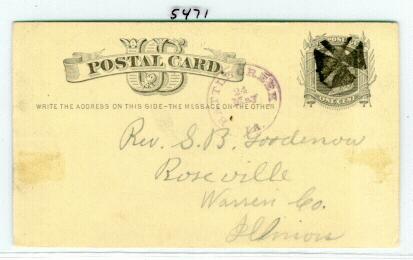 5471
US
POSTAL CARD
WRITE THE ADDRESS ON THIS SIDE-THE MESSAGE ON THE OTHER
CREEK
24
MAY
ONE CENT
Rev. S. B. Goodenow
Roseville
Warren Co.
Illinois